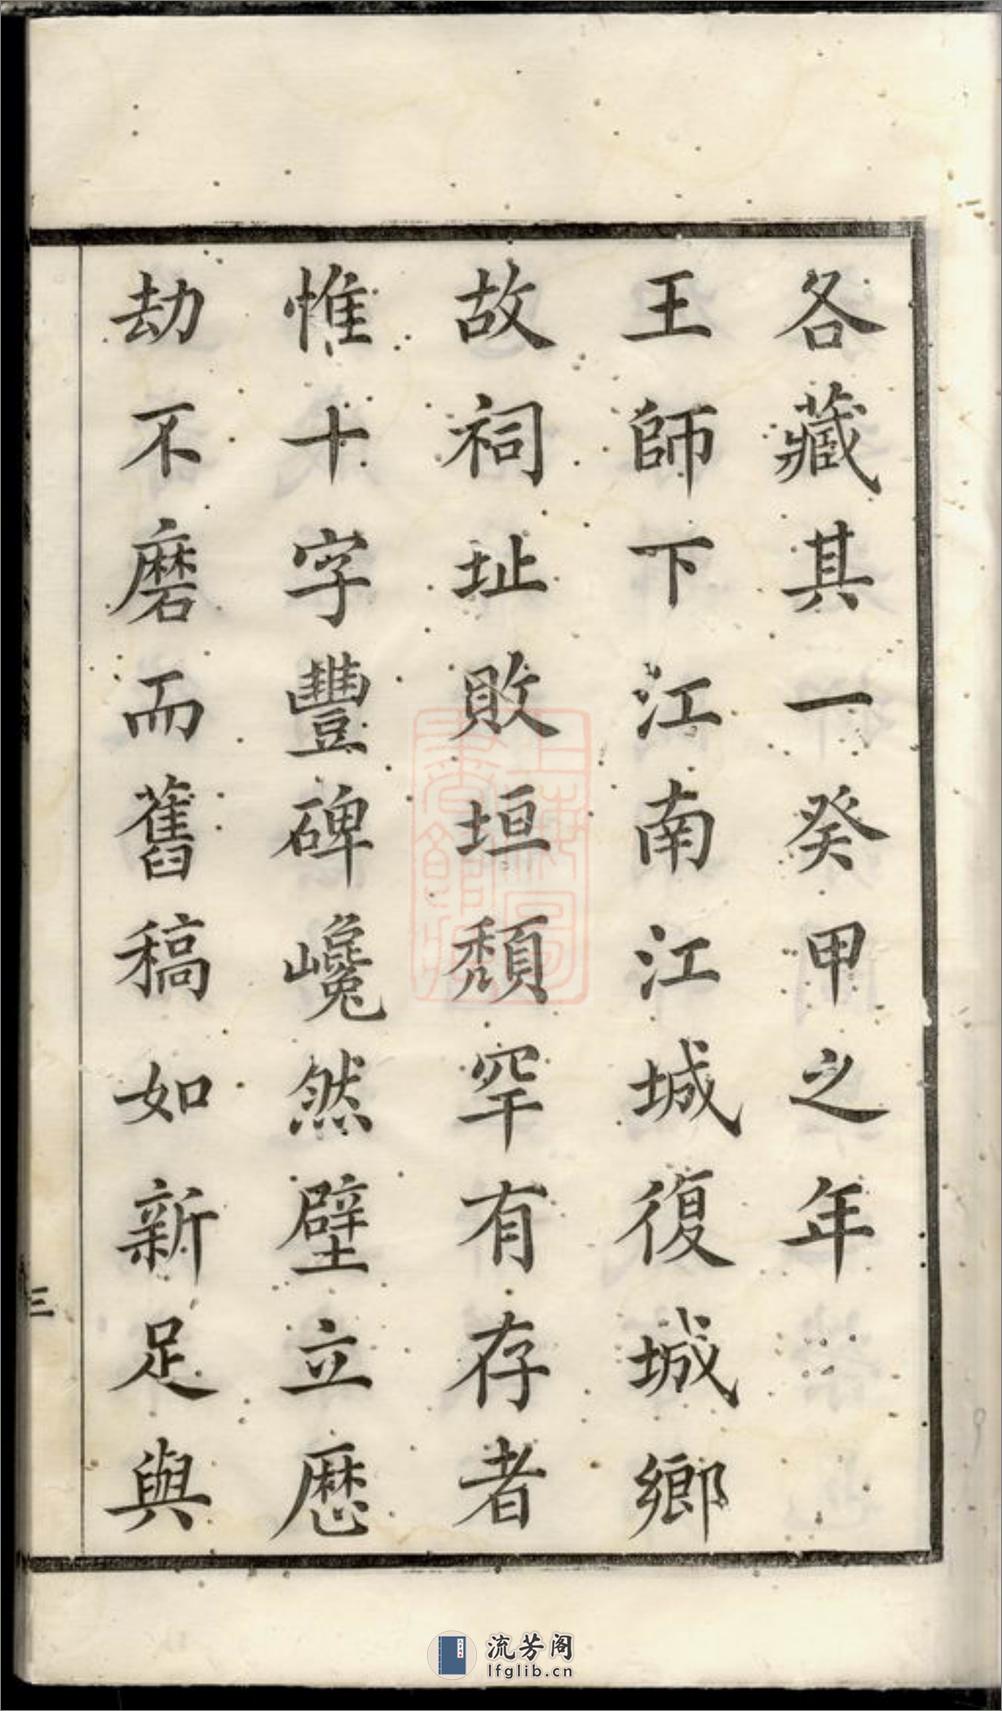 各藏其一癸甲之年
王師下江南江城復城鄉
故祠址敗垣頽罕有存者
惟十字豐碑巉然壁立厯
劫不磨而舊稿如新足與
三
上海圖書館藏
流芳阁
lfglib.cn